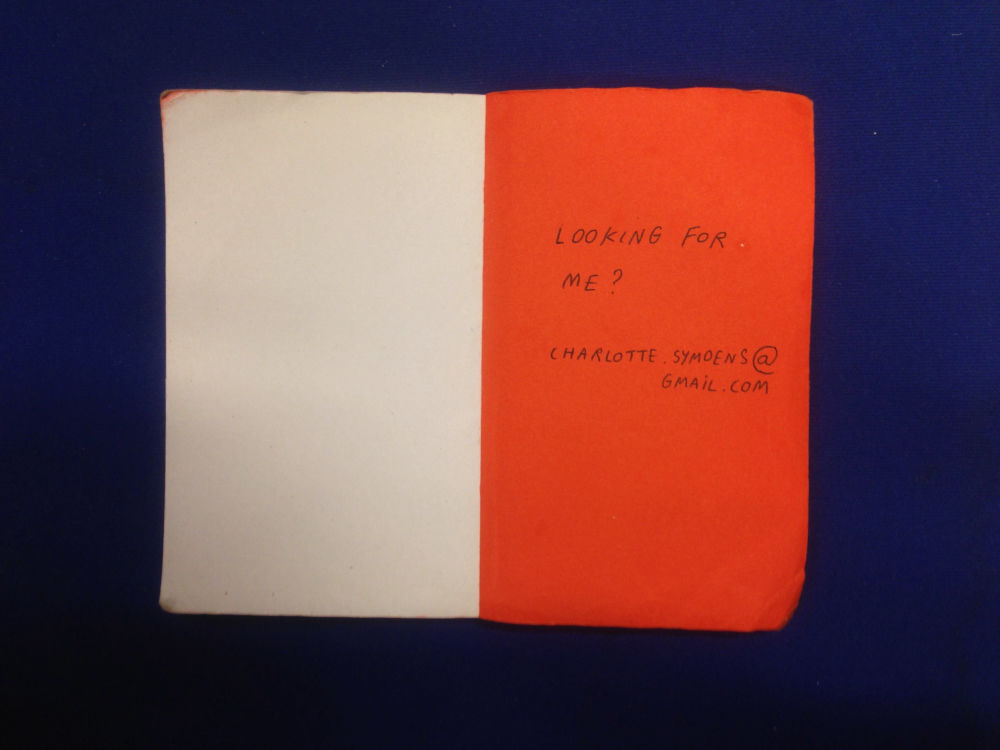 LOOKING FOR
ME?
CHARLOTTE.SYMOENS@
GMAiL.COM